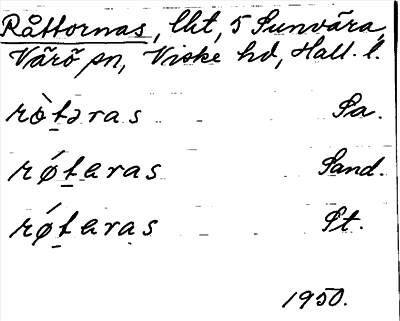 Råttornas, lht, 5 Sunvära,
Värö sn, Viske hd, Hall. l.
rò̱tǝras Sa.
rǿt̠eras Sand.
rǿt̠eras St.
1950.